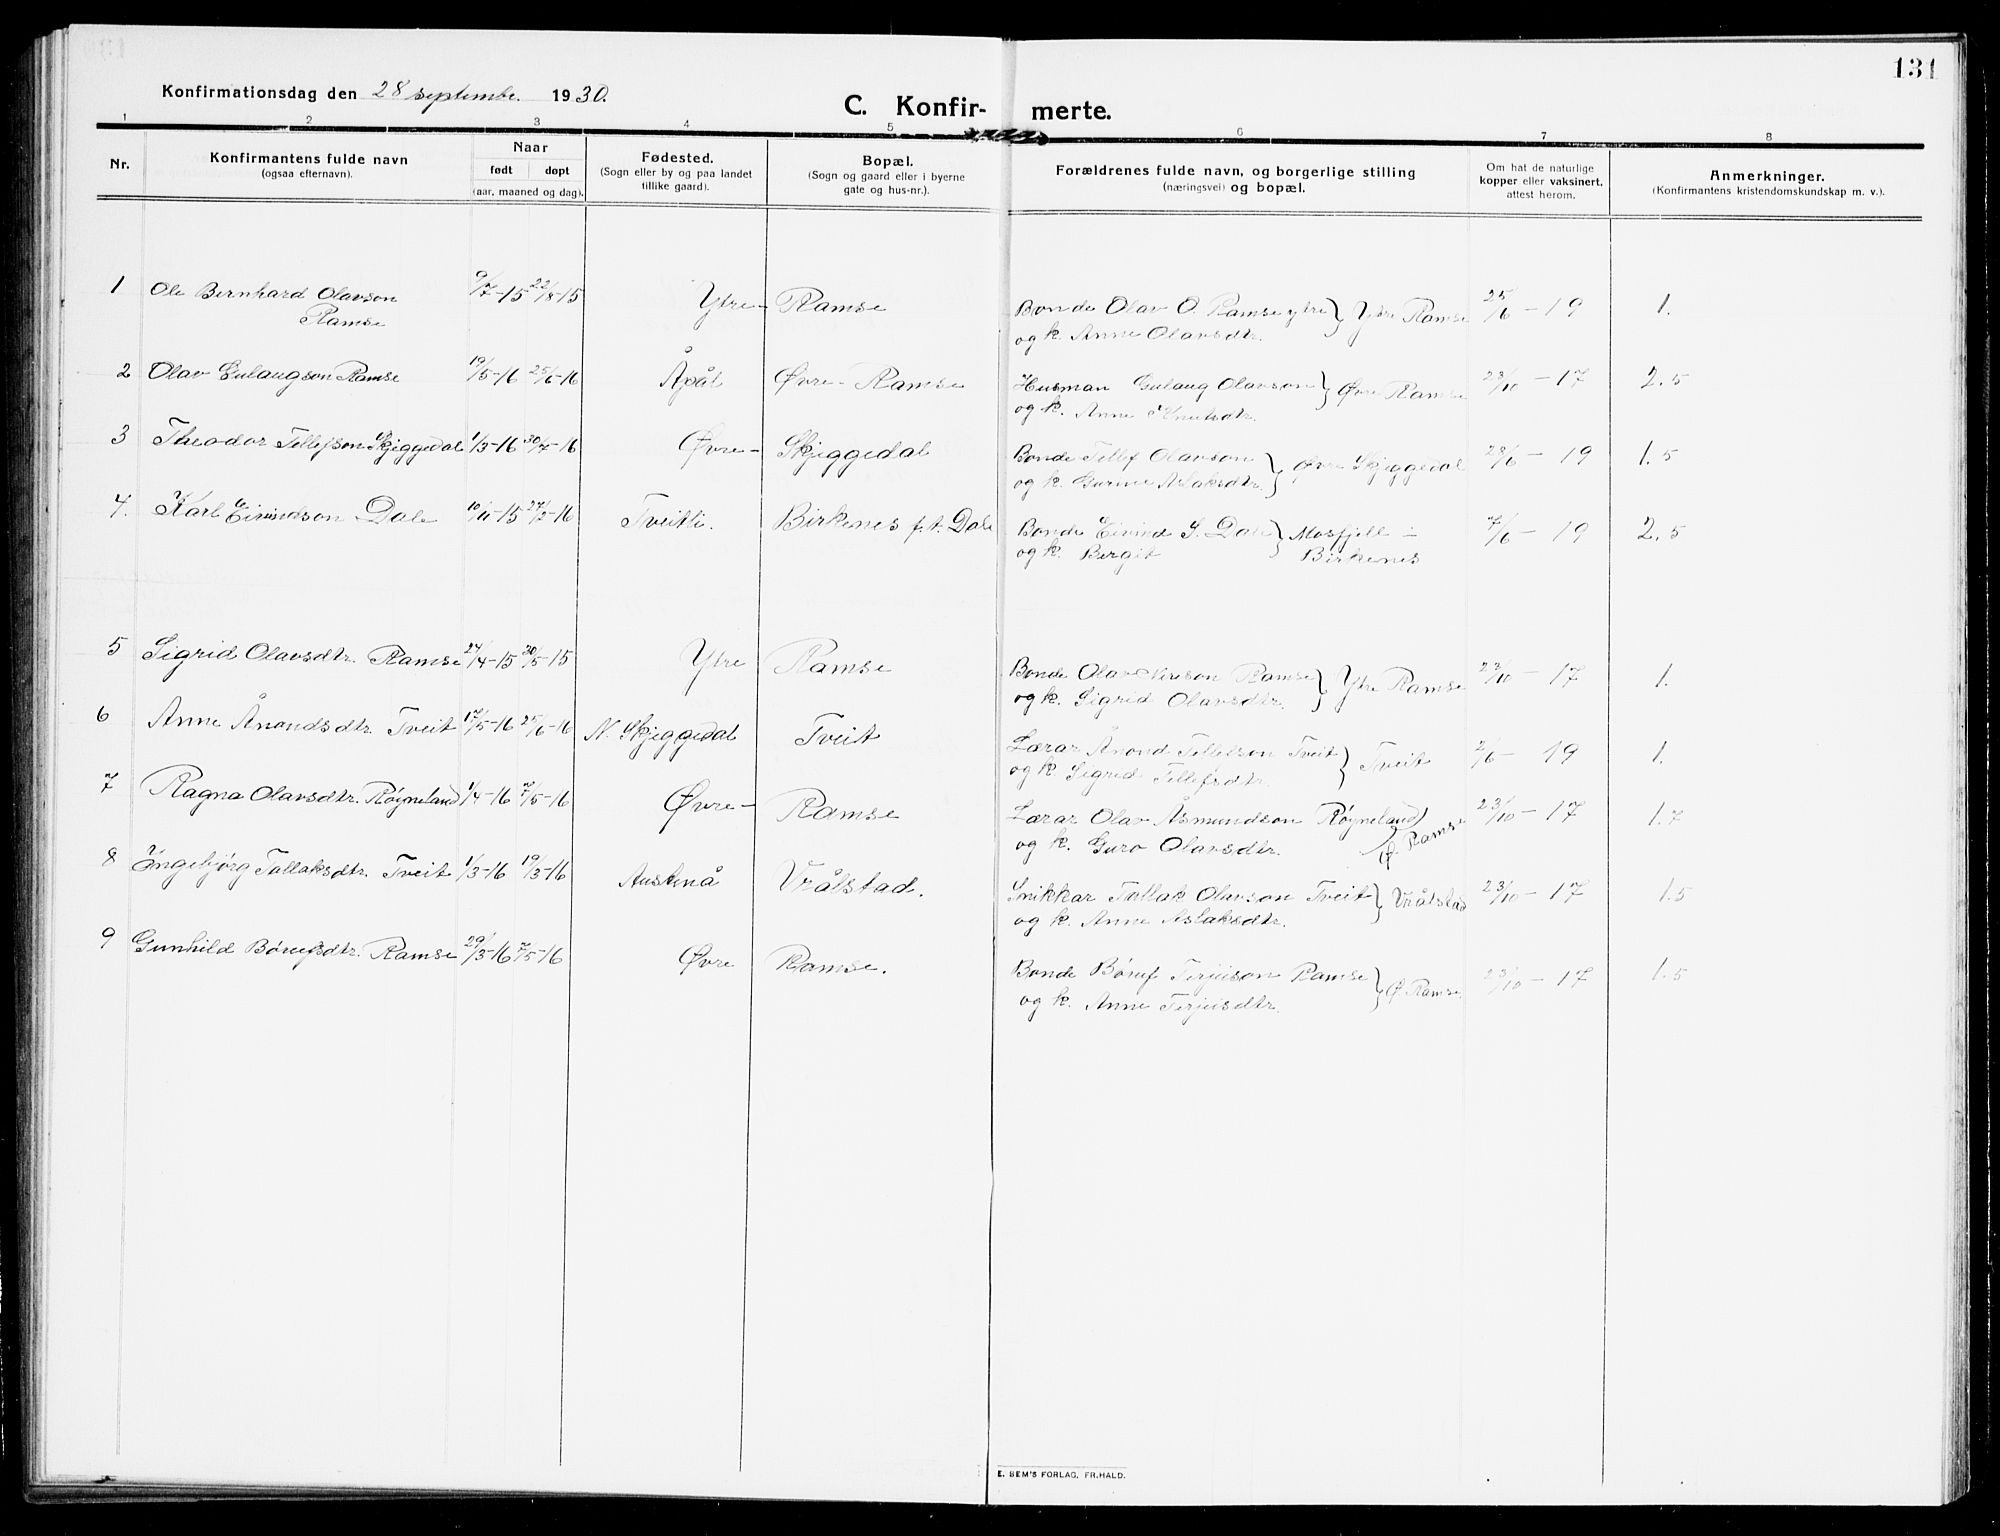 131
Konfirmationsdag den 28 septembe. 1930.
C. Konfir- merte.
1 2 3 4 5 6 7 8
Nr.
Konfirmantens fulde navn
(ogsaa efternavn).
Naar
født døpt
(aar, maaned og dag).
Fødested.
(Sogn eller by og paa landet
tillike gaard).
Bopæl.
(Sogn og gaard eller i byerne
gate og hus-nr.).
Forældrenes fulde navn, og borgerlige stilling
(næringsvei) og bopæl.
Om hat de naturlige
kopper eller vaksinert,
attest herom.
Anmerkninger.
(Konfirmantens kristendomskundskap m. v.).
1 Ole Bernhard Olavson 9/7-15 22/8-15 Ytre- Ramse Bonde Olav O. Ramse ytre } Ytre Ramse 25/6-19 1.
Ramse og k. Anne Olavsdtr.
2 Olav Gulaugson Ramse 19/5-16 25/6-16 Åpål Øvre-Ramse Husman Gulaug Olavson } Øvre Ramse 23/10-17 2.5
og k. Anne Knutsdtr.
3 Theodor Tellefson Skjeggedal 1/3-16 30/7-16 Øvre- Skjeggedal Bonde Tellef Olavson } Øvre Skjeggedal 28/6-19 1.5
og k. Gurine Aslaksdtr.
4. Karl Eivindson Dale 10/11-15 27/2-16 Tveitli. Birkenes f.t. Dale Bonde Eivind S. Dale } Mosfjell -
og k. Bergit Birkenes 7/6-19 2.5
5 Sigrid Olavsdtr. Ramse 24/4-15 30/5-15 Ytre Ramse Bonde Olav Ramse } Ytre Ramse 23/10-17 1.
og k. Sigrid Olavsdtr.
6 Anne Ånondsdtr. Tveit 17/5-16 25/6-16 N. Skjeggedal Tveit Lærar Ånond Tellefson Tveit } Tveit 2/6-19 1.
og k. Sigrid Tellefsdtr.
7 Ragna Olavsdtr. Røyneland 1/4-16 7/5-16 Øvre- Ramse Lærar Olav Åsmundson Røyneland } Ø. Ramse 23/10-17 1.7
og k. Guro Olavsdtr.
8 Ingebjørg Tallaksdtr. Tveit 1/3-16 19/3-16 Austenå Vrålstad. Snikkar Tallak Olavson Tveit } Vrålstad 23/10-17 1.5
og k. Anne Aslaksdtr.
9 Gunhild Børufsdtr. Ramse 29/3-16 7/5-16 Øvre Ramse. Bonde Børuf Terjeison Ramse } Ø. Ramse. 23/10-17 1.5
og k. Anne Terjeisdtr.
E. SEM'S FORLAG, FR.HALD.